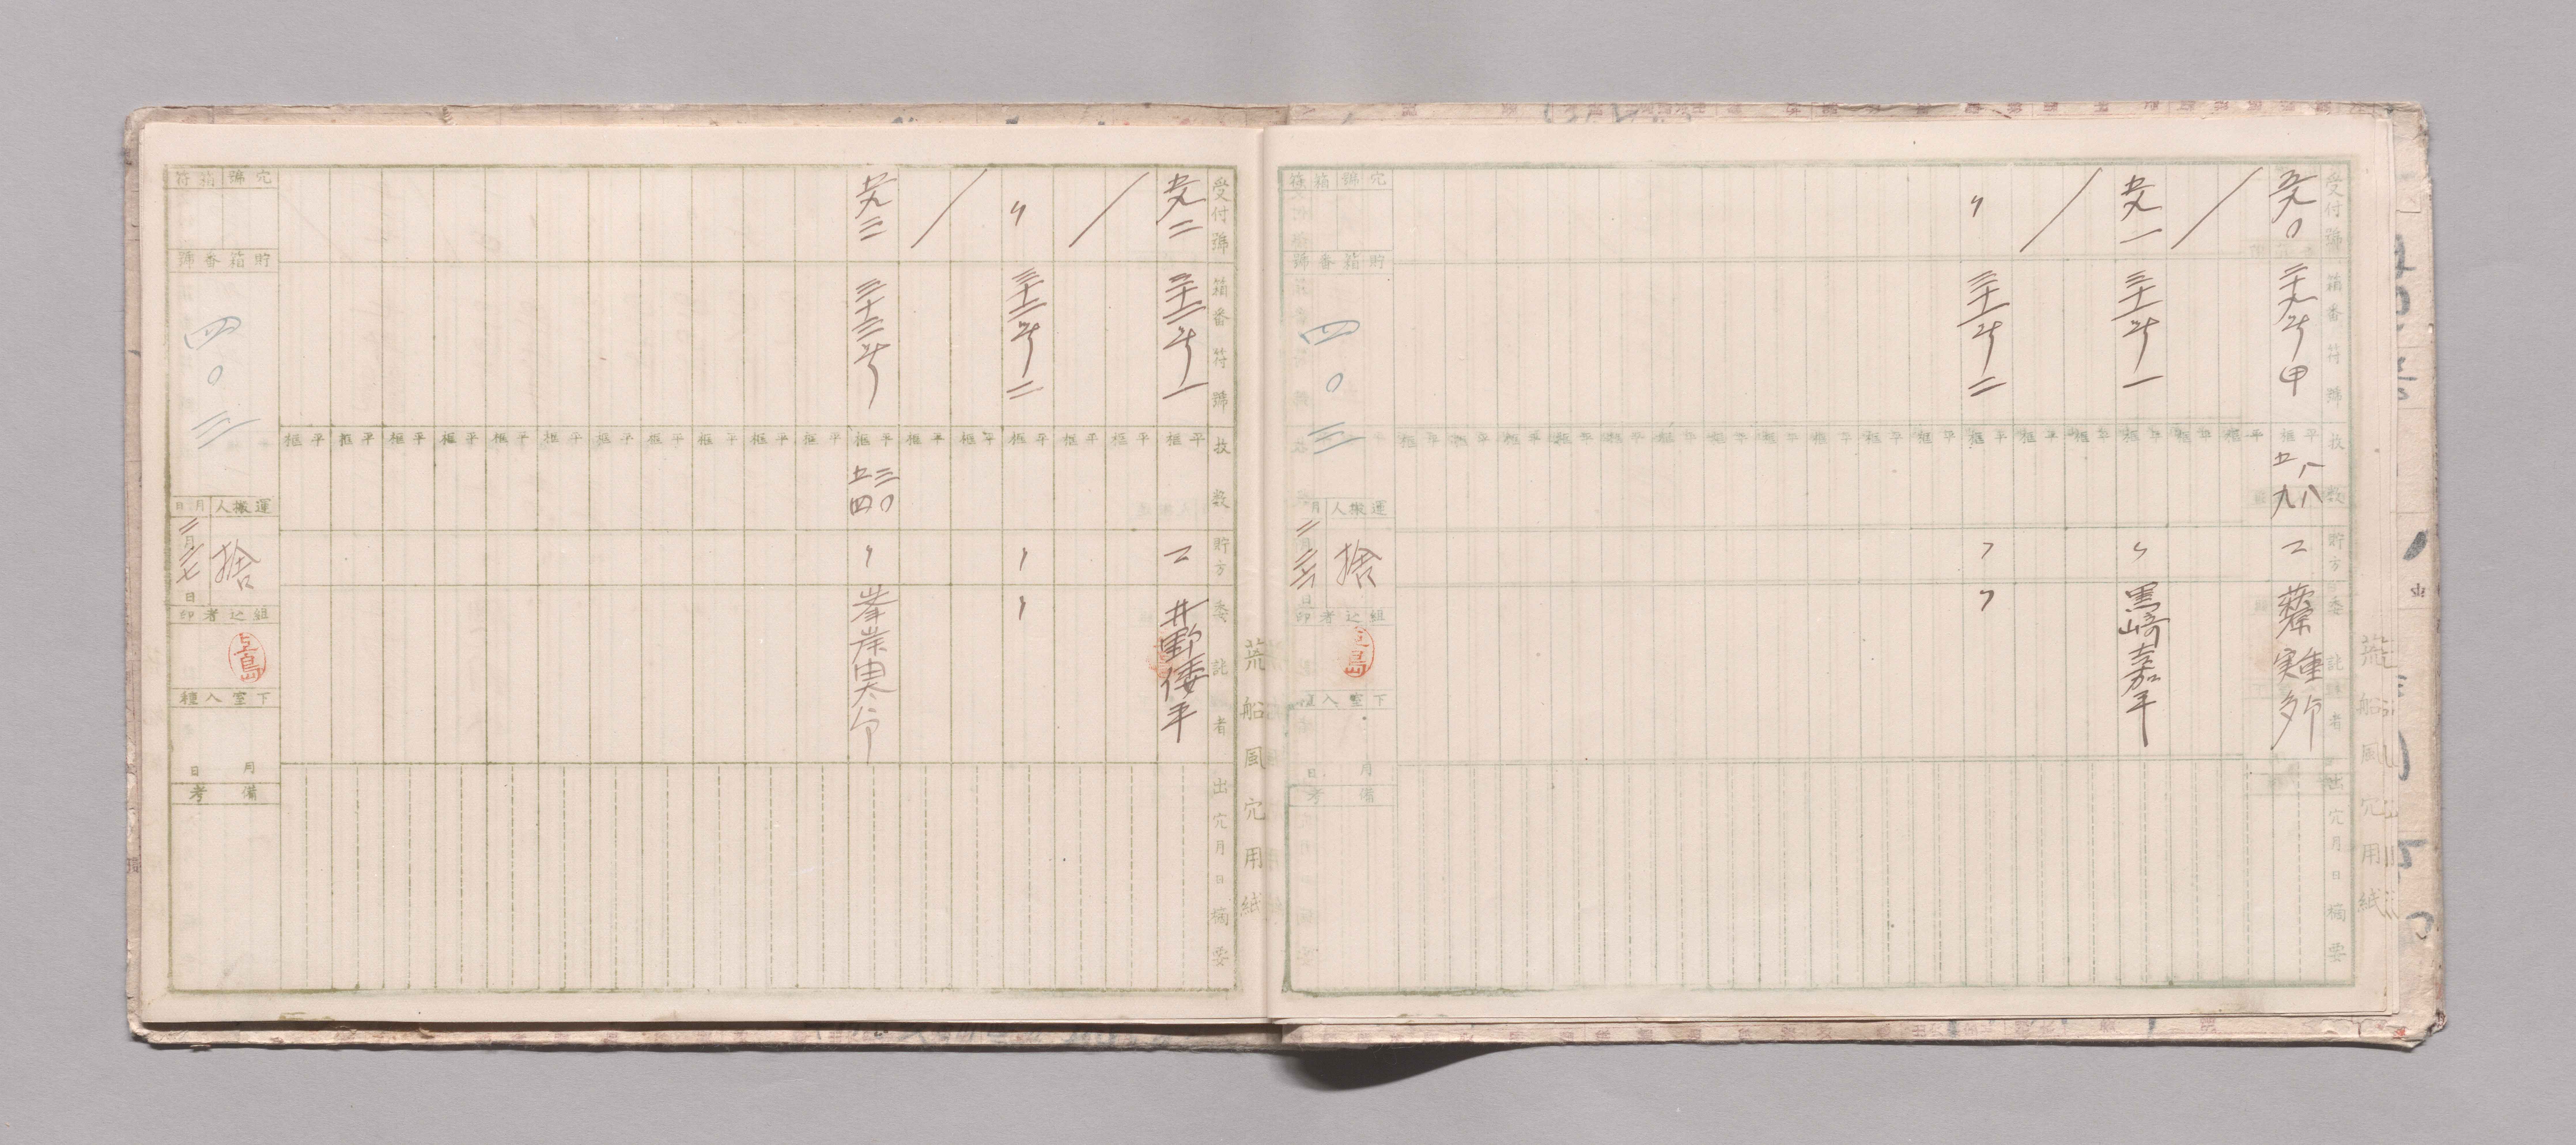 荒船風穴用紙
受付號
箱番符號
枚数
貯方
委託者
出穴月日
摘要
五九〇
三十九号甲
平框
八八
五九
二
五九一
三十一号一
黒﨑嘉平
〃
三十一号二
穴號
箱符
貯箱番號
四〇三
運搬人
月日
捨
組込者印
下室入種
月日
備考
荒船風穴用紙
受付號
箱番符號
枚数
貯方
委託者
出穴月日
摘要
五九二
三十二号一
二
井野倭平
〃
三十二号二
五九三
三十三号
平框
三〇
五四
峯岸
穴號
箱符
貯箱番號
四〇三
運搬人
月日
捨
二月二七日
組込者印
下室入種
月日
備考